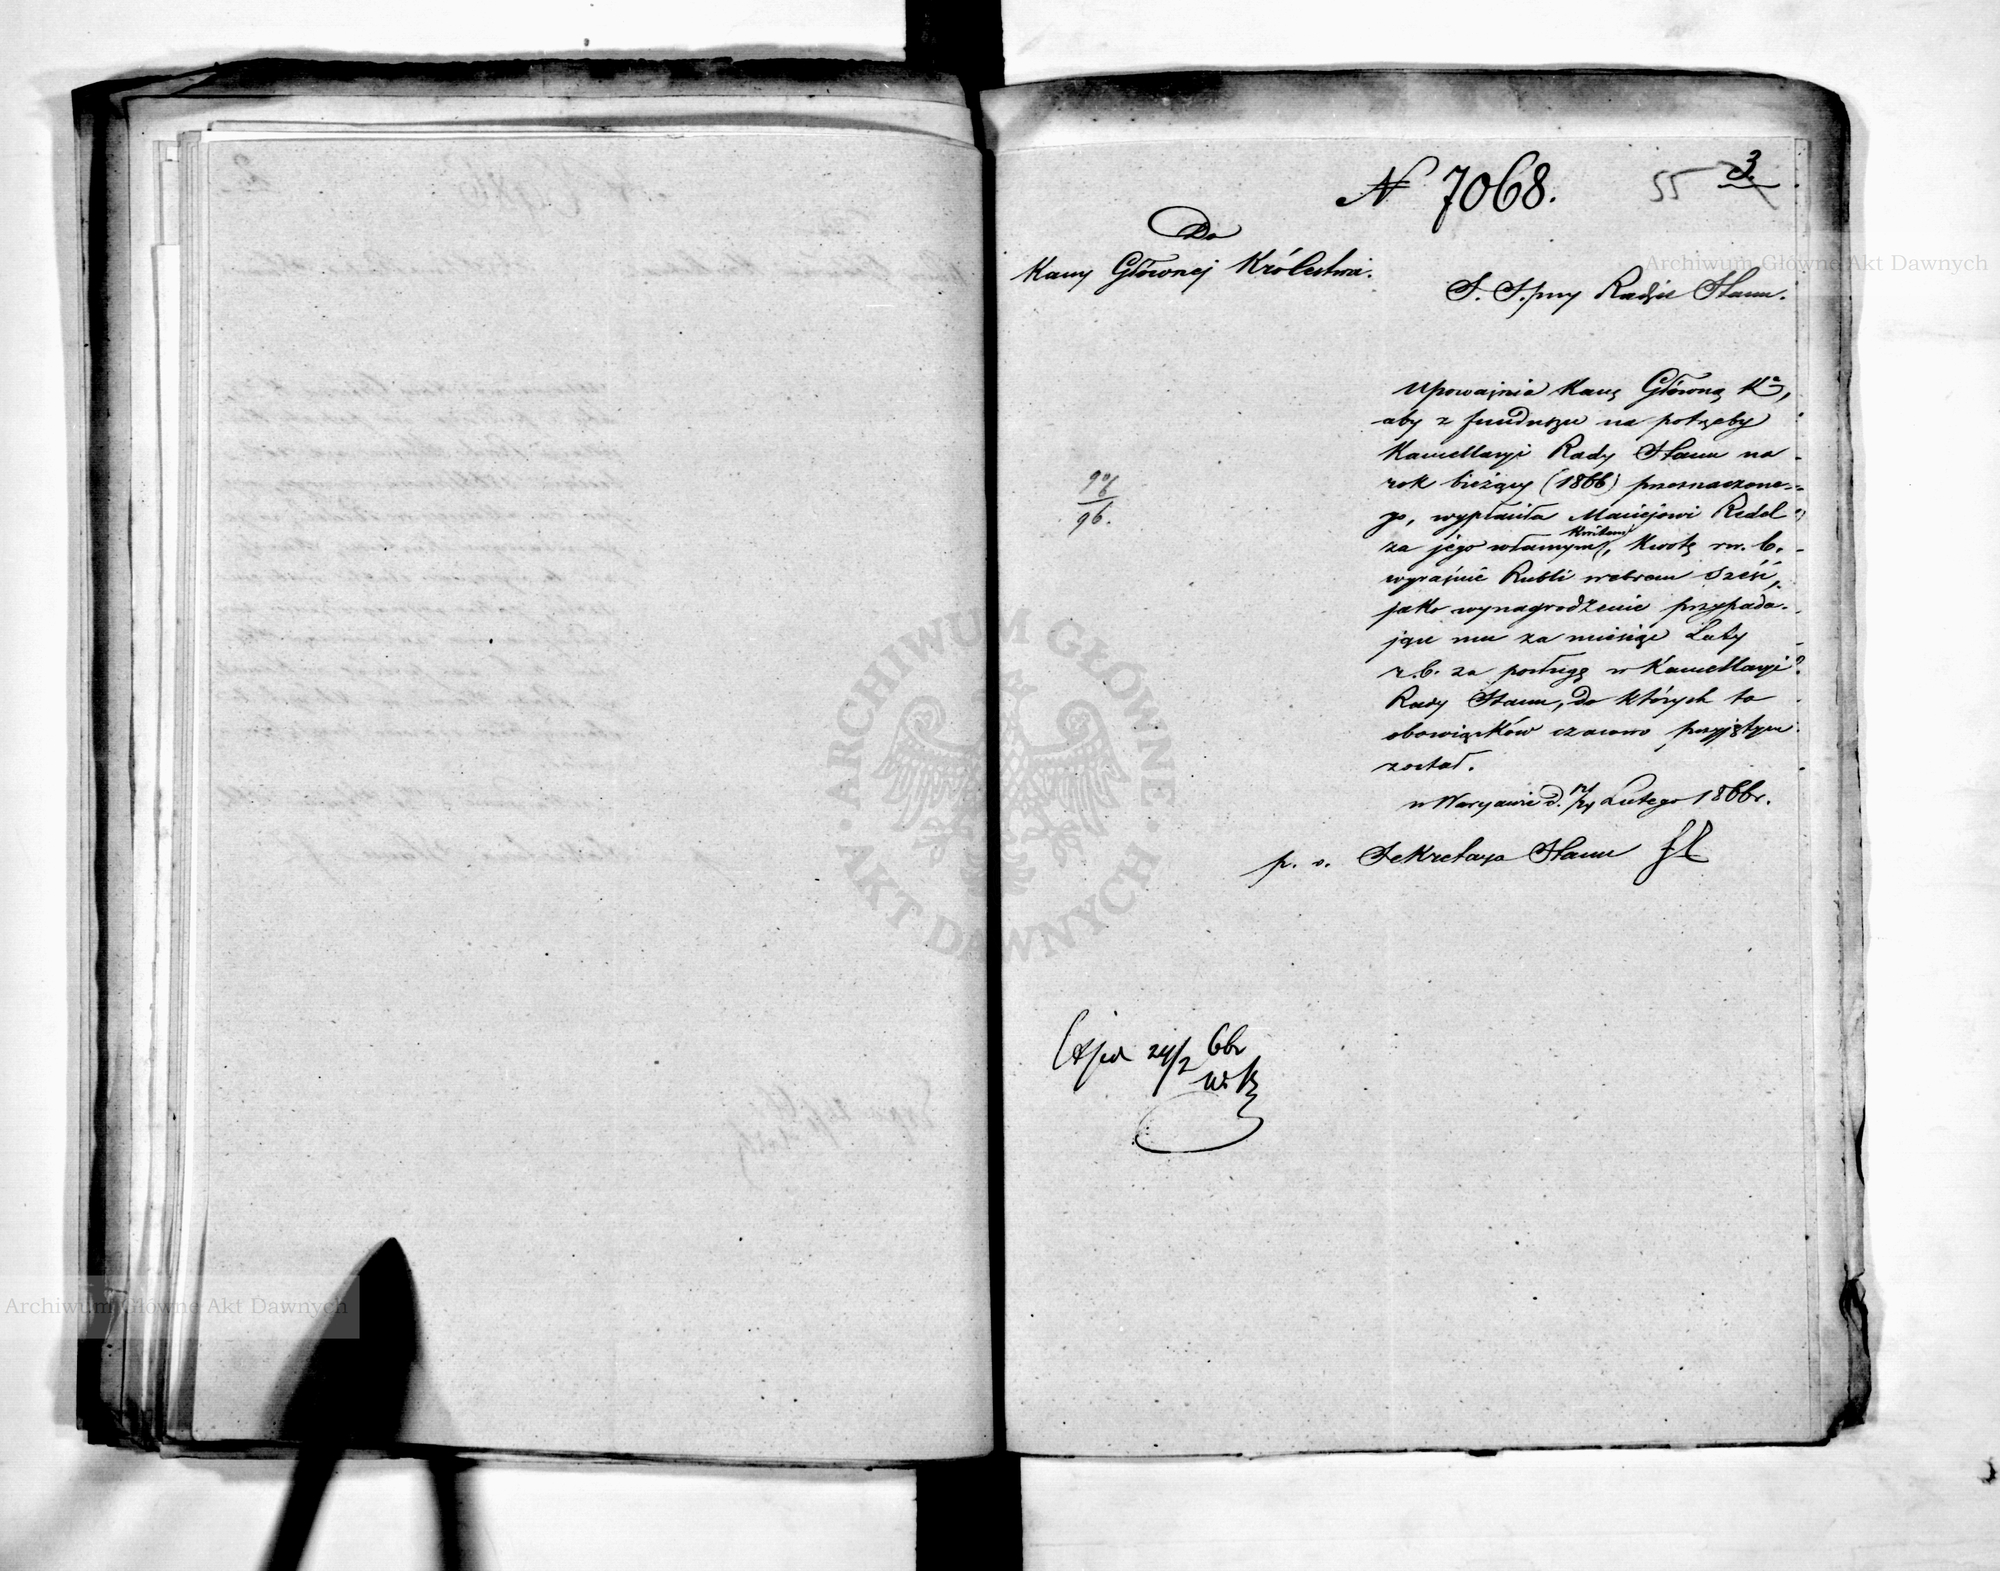 N 7068.
55 3
Do
Kassy Głównej Królestwa.
S. S. przy Radzie Stanu.
Upoważnia Kassę Główną Ka,
aby z funduszu na potrzeby
Kancellaryi Rady Stanu na
rok bieżący (1866) przeznaczone-
go, wypłaciła Maciejowi Redel
za jego własnym kwitem, kwotę rsr. 6.
wyraźnie Rubli srebrem sześć,
jako wynagrodzenie przypada-
jące mu za miesiąc Luty
r.b. za posługę w Kancellaryi
Rady Stanu, do których to
obowiązków czasowo przyjętym
został.
w Warszawie d. Lutego 1866 r.
p. o. Sekretarza Stanu
96.
24/2 66r
ARCHIWUM GŁÓWNE
AKT DAWNYCH
Archiwum Główne Akt Dawnych
Archiwum Główne Akt Dawnych